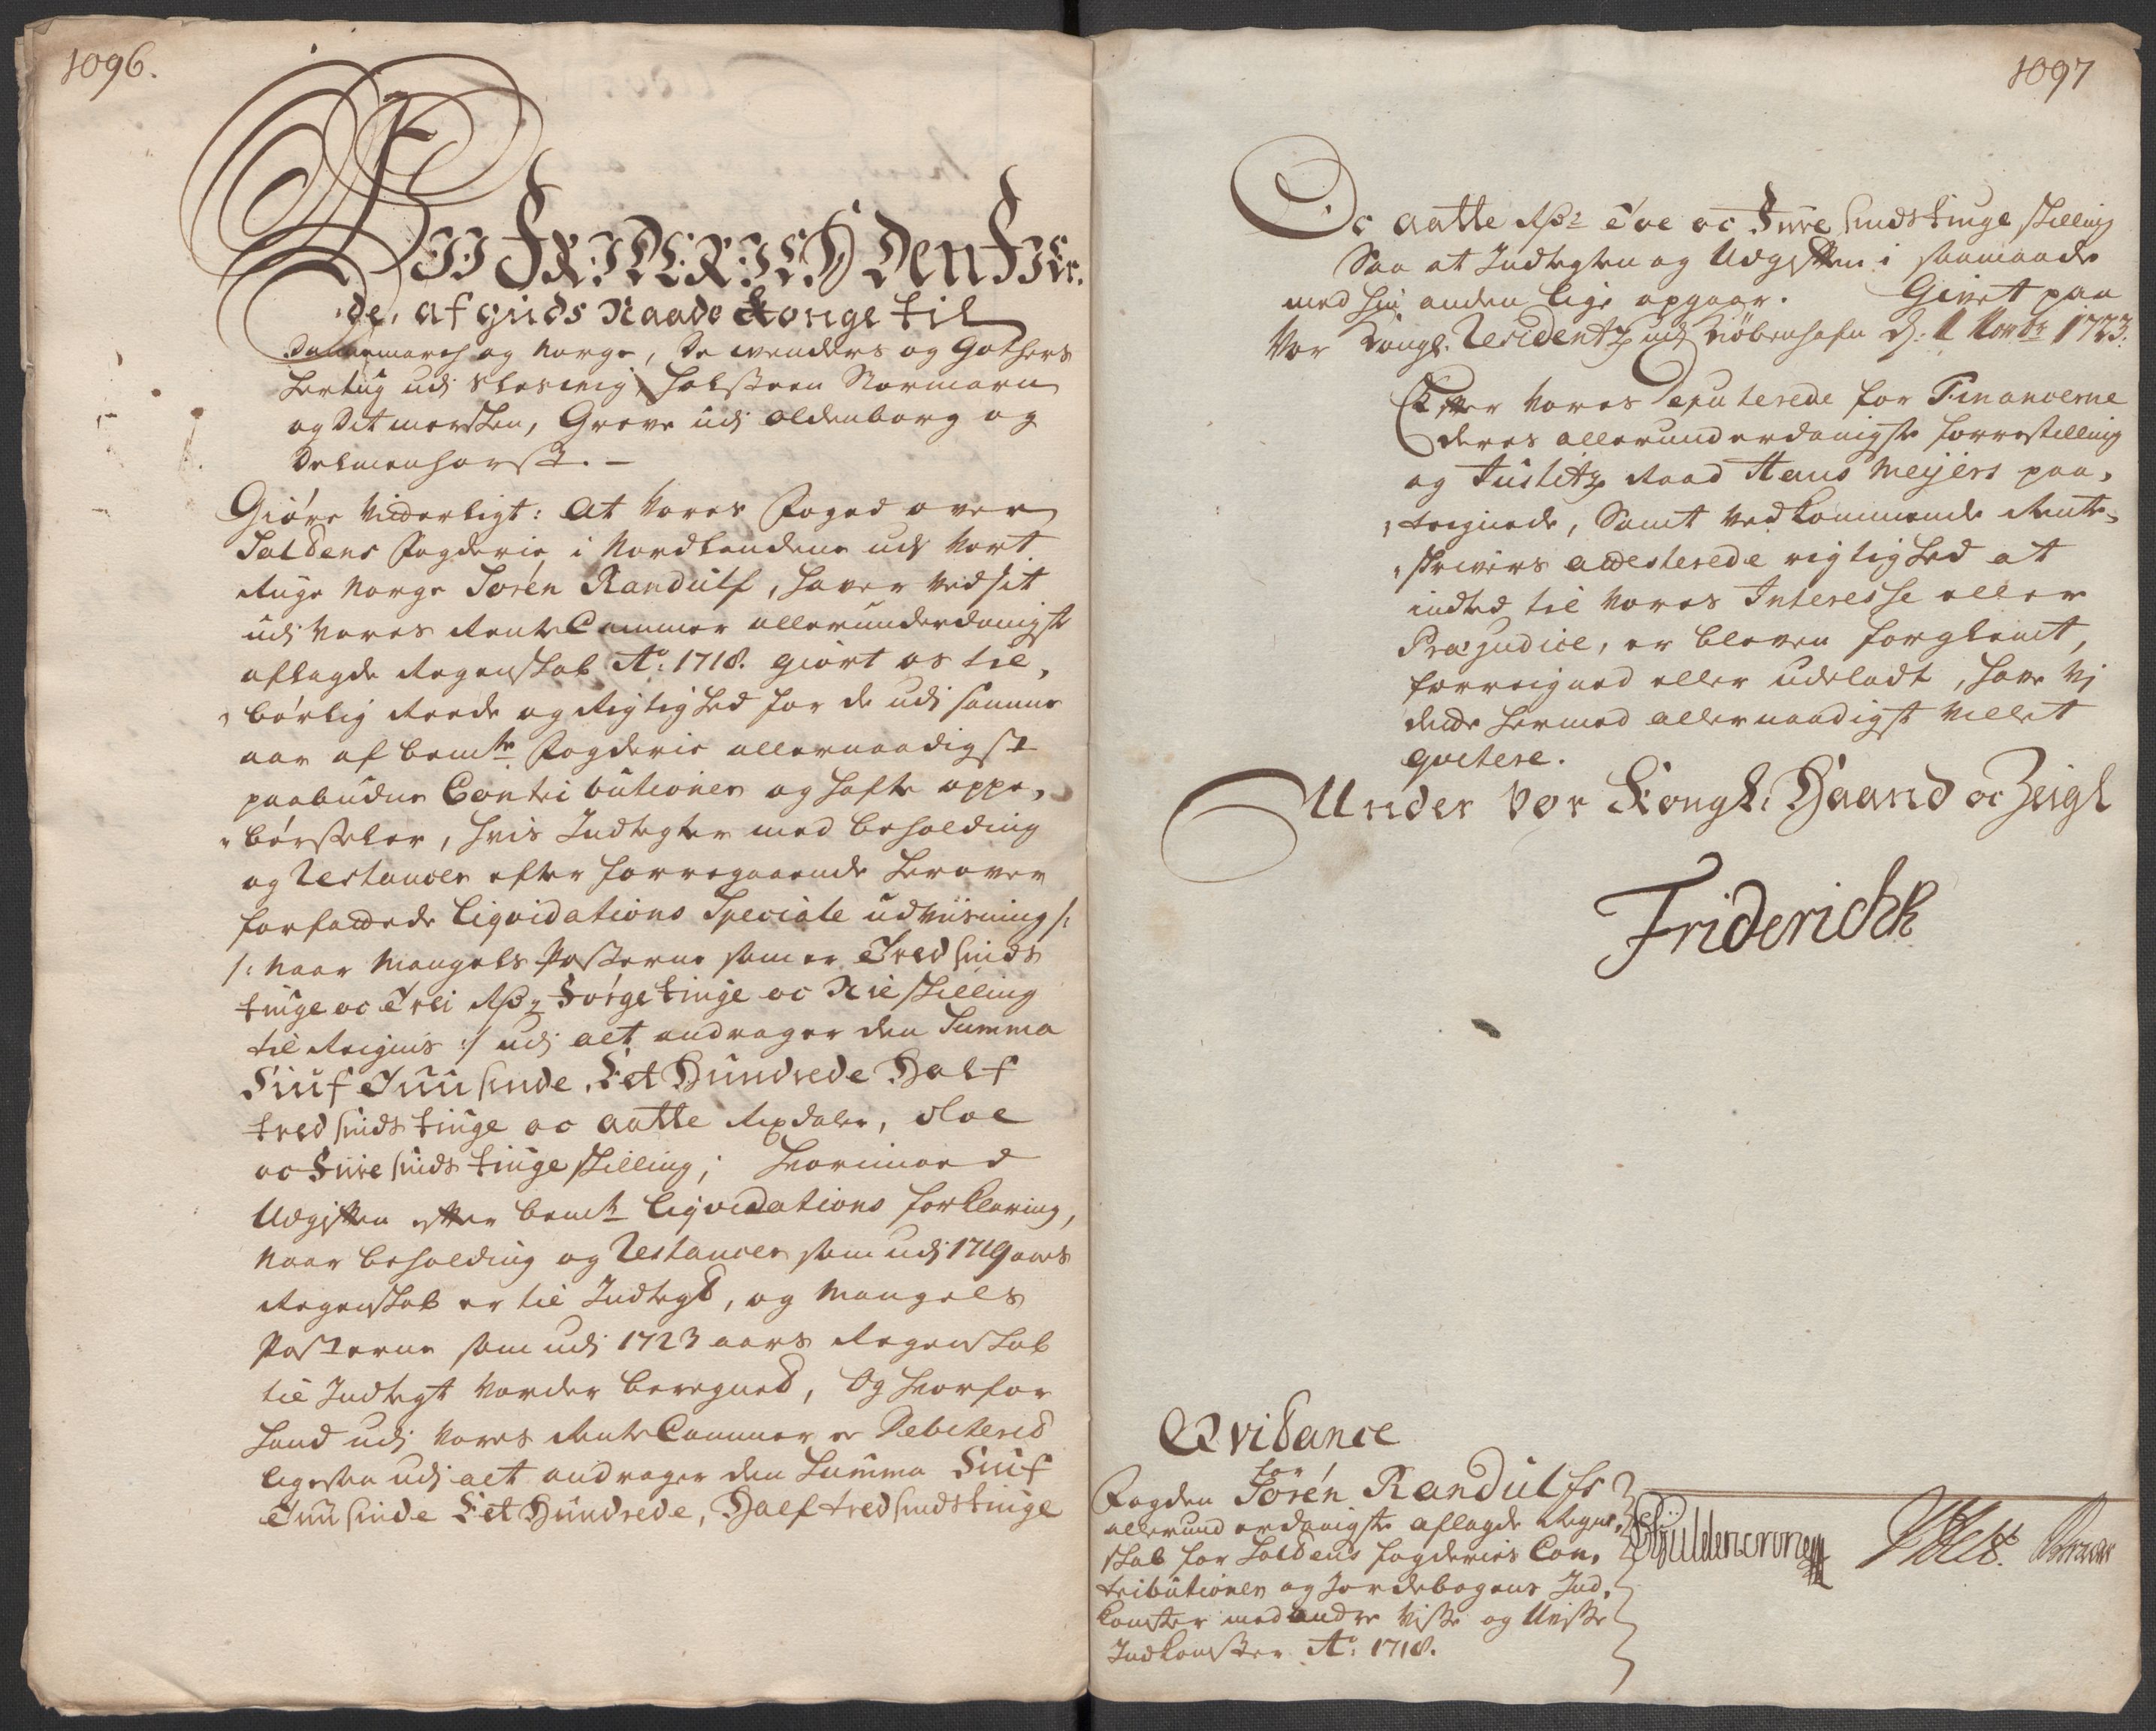 1096.
Vii FRIDERICH Den Fier-
de, af Guds Naade Konge til
Dannemarch og Norge, de Wenders og Gothers
Hertug udj Slesvig, Holsteen Stormarn
og Ditmersken, Greve udj Oldenborg og
Delmenhorst. -
Giöre Vitterligt: At Vores Foged over
Saldens Fogderie i Nordlandene udj Vort
Riige Norge Sorén Randulf, haver ved sit
udj Vores RenteCammer allerunderdanigst
aflagde Regenskab Ao: 1718. giort os til,
börlig Reede og Rigtighed for de udj samme
aar af bemte Fogderie allernaadigst
paabudne Contributioner og hafte oppe,
börsseler, hvis Indtegter med beholding
og Restancer efter forregaaende herover
forfattede Liqvidations Speciale udviisning /:
/: naar Mangels Posterne som er Tredsinds
tiuge oc Trei Rdr Förgetiuge oc Nie skilling
til Reignis :/ udj alt andrager den Summa
Siuf Tuusinde, Eet Hundrede Half
tredsinds tiuge oc aatte Rixdaler, Toe
oc Fiiresinds tiuge skilling; Hvorimoed
Udgiften efter bemte Liqvidations forklaring,
naar beholding og Restancer som udj 1719 aars
Regenskab er til Indtegt, og Mangels
Posterne som udj 1723 aars Regenskab
til Indtegt vorder beregned, Og hvorfor
hand udj Vores RenteCammer er Debiterit
ligesaa udj alt andrager den Summa Siuf
Tuusinde Eet Hundrede, Half tredsindstiuge
1097
Oc aatte Rdr Toe oc Fiiresindstiuge skilling
Saa at Indtegten og Udgiften i saamaade
med hin anden lige opgaar. Givet paa
Vor Kongl. Residentz udj Kiöbenhafn d. 1 Novbr 1723.
Efter Vores Deputerede for Financerne
deres allerunderdanigste forrestilling
og Justitz Raad Hans Meyers paa,
teignede, Samt vedkommende Rente,
skrivers attesterede rigtighed at
indted til Vores Interesse eller
Præjudice, er bleven forglemt,
forreigned eller udeladt, have Vj
dette hermed allernaadigst villet
qvitere.
Under Vor Kongl: Haand oc Zeigl
Friderich R
Qvitance
for
Fogden Sorén Randulfs
allerunderdanigste aflagde Regen,
skab for Saldens fogderies Con,
tributioner og Jordebogens Ind,
komster med andre visse og Uvisse
Indkomster Ao: 1718.
CGüldencrone